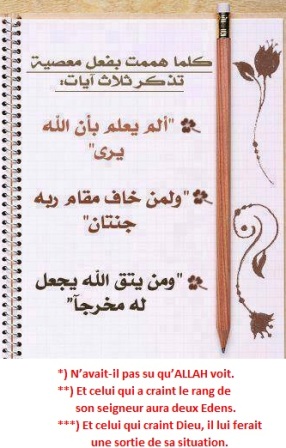 كلما هممت بفعل معصية
تذكر ثلاث آيات:
"ألم يعلم بأن الله
يرى"
"ولمن خاف مقام ربه
جنتان"
"ومن يتق الله يجعل
له مخرجآ"
*) N’avait-il pas su qu’ALLAH voit.
**) Et celui qui a craint le rang de
son seigneur aura deux Edens.
***) Et celui qui craint Dieu, il lui ferait
une sortie de sa situation.